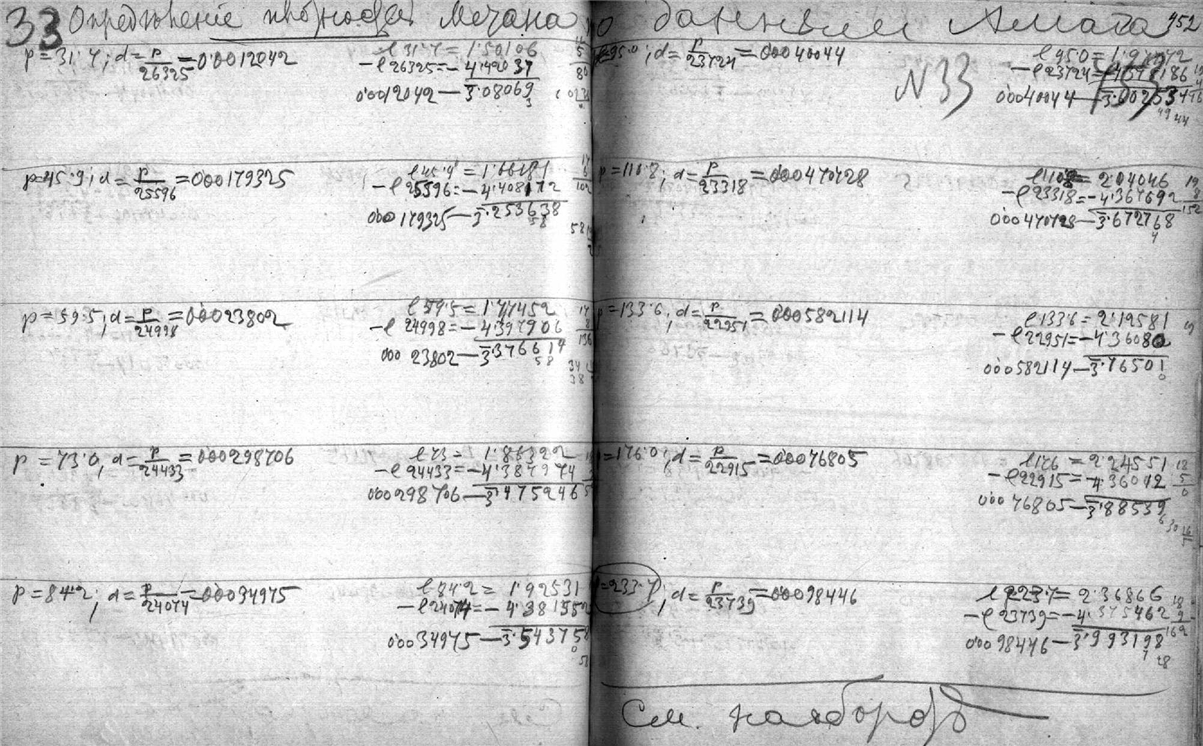 33 Определеніе плотностей Метана по даннымъ Амага 452
p=31.7; d=p/26325=000 12042
l 31.7 = 1.50106
-l 26325=-4.42037
000 12042-3̅.08069
p=45.9; d=p/25596=000179325
-l 25596=-4.408172
000179325-3̅.253638
58
p=59.5; d=p/24998=00023802
l 59.5 = 1.77452
-l 24998=-4.397906
000 23802-3̅.376614
58
p=73.0, d=p/24433=000298706
l 73 = 1.86322
-l 24433=-4.387974
000298706-3̅.475246
p=84.2, d=p/24074=00034975
l 84.2 = 1.92531
-l 24074=-4.38155
000 34975-3̅.54375
p=95.0; d=p/23724=00040044
N 33
000 40044-3̅.60253
p=110.8; d=p/23318=000470428
l 1108 = 2.04046
-l 23318=-4.367692
000470428-3̅.672768
p=133.6; d=p/22951=000582114
l 1336 = 2.12581
-l 22951=-4.36080
000582114-3̅.76501
p=176.0; d=p/22915=00076805
l 176 = 2.24551
-l 22915=-4.36012
000 76805-3̅.88539
p=233.7; d=p/23739=00098446
l 233.7 = 2.36866
-l 23739=-4.375462
000 98446-3̅.993198
См. на оборотѣ